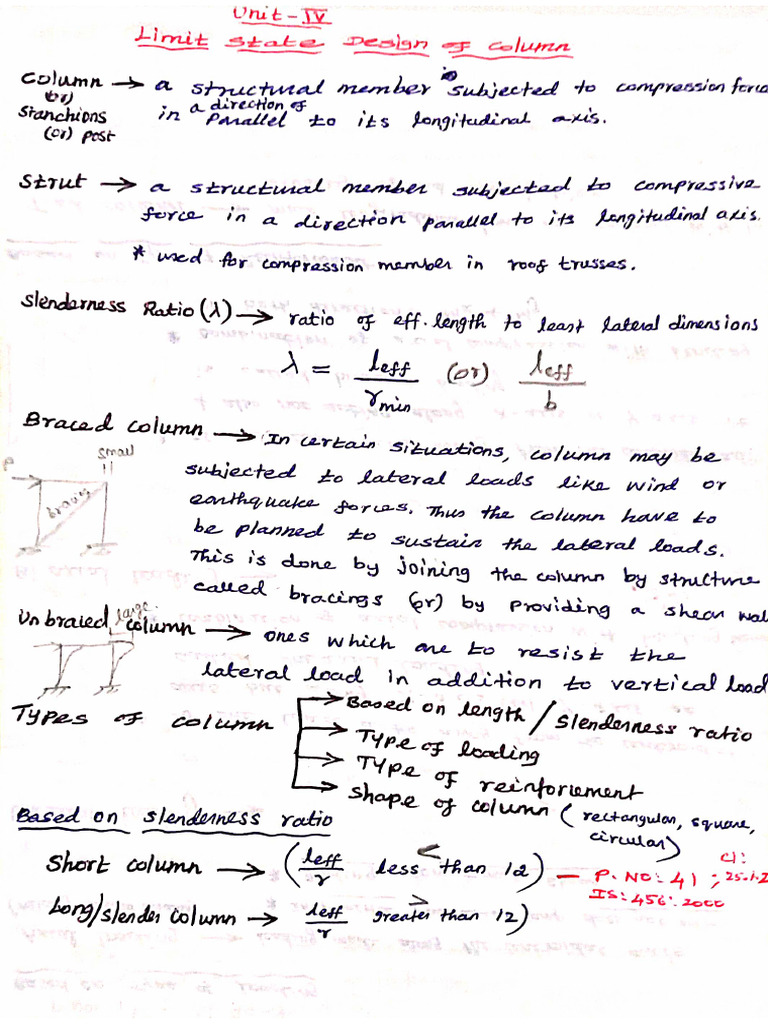 Unit - IV
Limit State Design of Column
Column → a structural member is subjected to compression force
(or)
Stanchions in a direction of parallel to its longitudinal axis.
(or) Post
Strut → a structural member subjected to compressive
force in a direction parallel to its longitudinal axis.
* used for compression member in roof trusses.
Slenderness Ratio (λ) → ratio of eff. length to least lateral dimensions
λ = leff / rmin (or) leff / b
Braced column → In certain situations, column may be
small
subjected to lateral loads like wind or
P
bracing
earthquake forces. Thus the column have to
be planned to sustain the lateral loads.
This is done by joining the column by structure
called bracings (or) by providing a shear wall
Unbraced column → ones which are to resist the
large
lateral load in addition to vertical load
Types of column → Based on length / slenderness ratio
→ Type of loading
→ Type of reinforcement
→ Shape of column (rectangular, square,
circular)
Based on slenderness ratio
Short column → (leff/r less < than 12) — P.NO: 41 ; cl: 25.1.2
IS: 456: 2000
Long/slender column → leff/r > greater than 12)